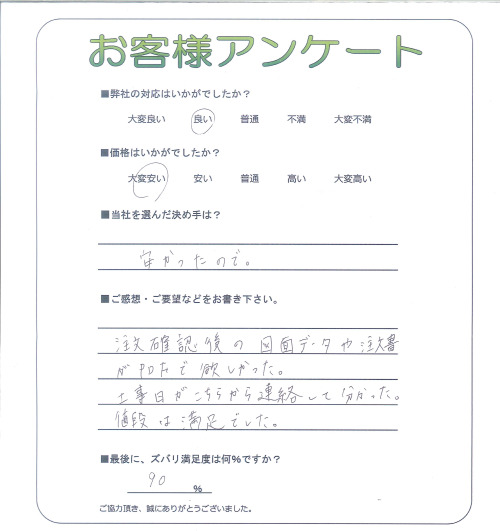 お客様アンケート
■弊社の対応はいかがでしたか?
大変良い 良い 普通 不満 大変不満
■価格はいかがでしたか?
大変安い 安い 普通 高い 大変高い
■当社を選んだ決め手は?
安かったので。
■ご感想・ご要望などをお書き下さい。
注文確認後の図面データや注文書
がPDFで欲しかった。
工事日がこちらから連絡して分かった。
値段は満足でした。
■最後に、ズバリ満足度は何%ですか?
90 %
ご協力頂き、誠にありがとうございました。